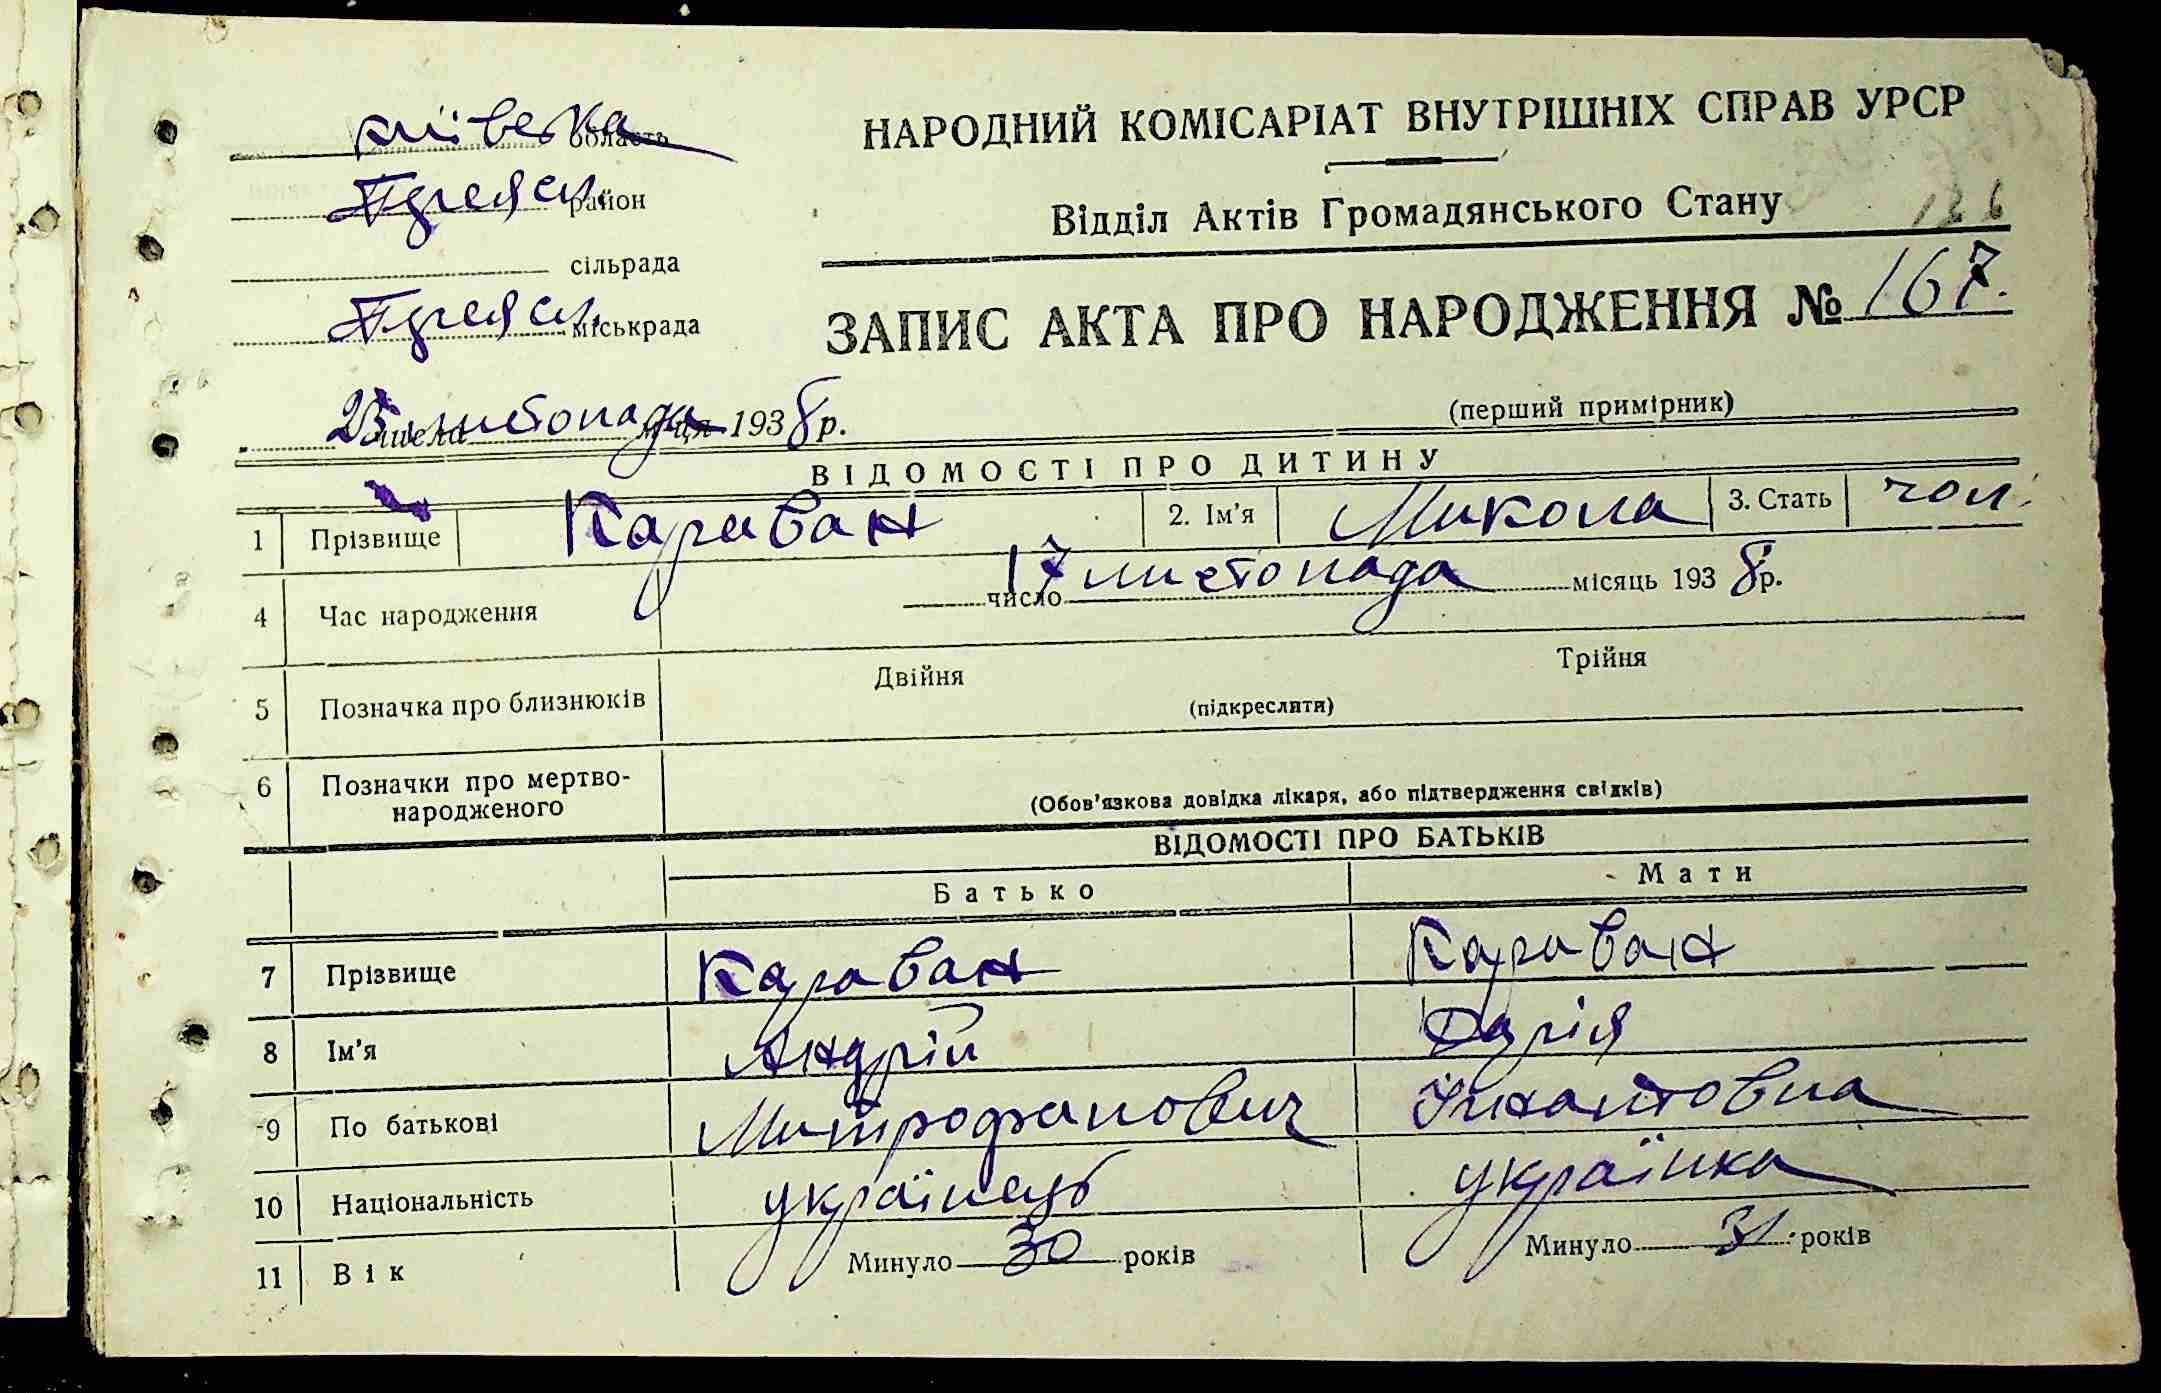 київська область
НАРОДНИЙ КОМІСАРІАТ ВНУТРІШНІХ СПРАВ УРСР
район
Відділ Актів Громадянського Стану
сільрада
міськрада
ЗАПИС АКТА ПРО НАРОДЖЕННЯ № 167.
(перший примірник)
числа листопада м-ця 1938 р.
ВІДОМОСТІ ПРО ДИТИНУ
1 Прізвище Караван 2. Ім'я Микола 3. Стать чол.
4 Час народження 17 число листопада місяць 1938 р.
5 Позначка про близнюків Двійня Трійня
(підкреслити)
6 Позначки про мертво-
народженого
(Обов'язкова довідка лікаря, або підтвердження свідків)
ВІДОМОСТІ ПРО БАТЬКІВ
Батько Мати
7 Прізвище Караван Караван
8 Ім'я Андрій Дарія
9 По батькові Митрофанович
10 Національність українець українка
11 Вік Минуло 30 років Минуло 31 років